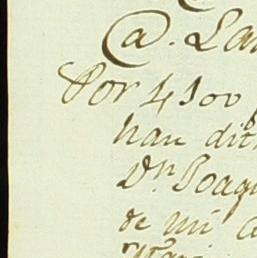 @. La
Por 4100
han dic
Dn. Joaq
de mi a